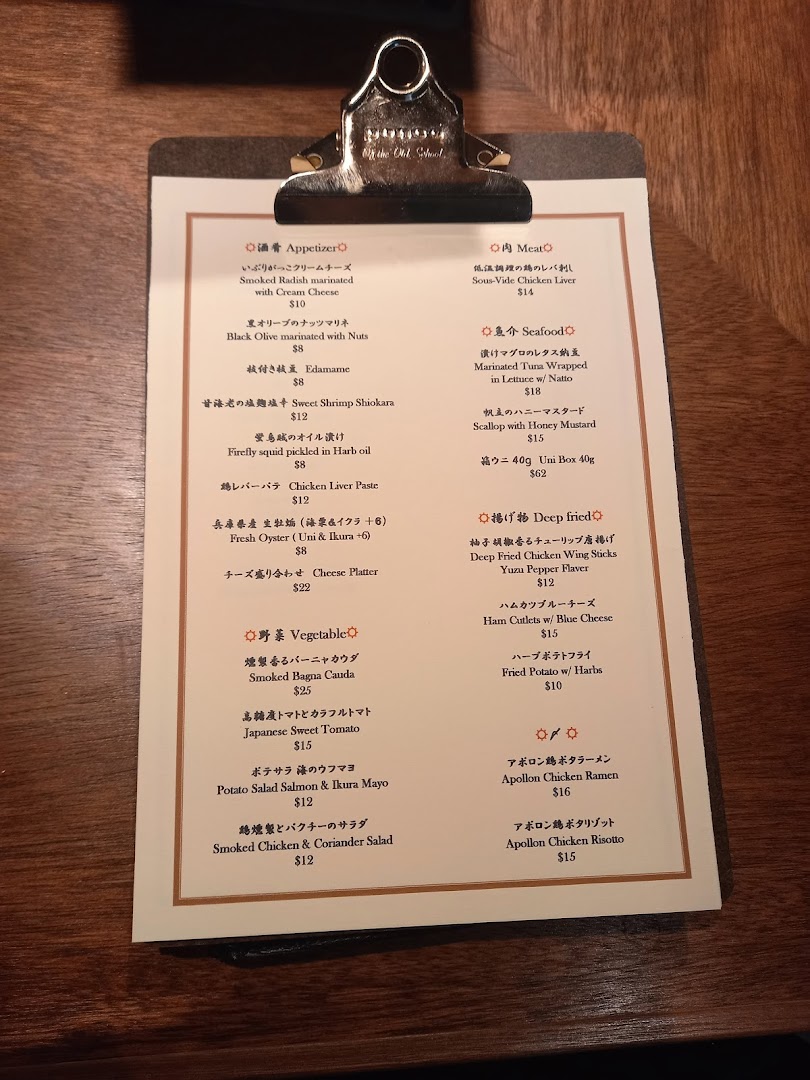 Of the Old School
酒肴 Appetizer
いぶりがっこクリームチーズ
Smoked Radish marinated
with Cream Cheese
$10
黒オリーブのナッツマリネ
Black Olive marinated with Nuts
$8
枝付き枝豆 Edamame
$8
甘海老の塩麹塩辛 Sweet Shrimp Shiokara
$12
蛍烏賊のオイル漬け
Firefly squid pickled in Harb oil
$8
鶏レバーパテ Chicken Liver Paste
$12
兵庫県産 生牡蠣 (海栗&イクラ +6)
Fresh Oyster ( Uni & Ikura +6)
$8
チーズ盛り合わせ Cheese Platter
$22
野菜 Vegetable
燻製香るバーニャカウダ
Smoked Bagna Cauda
$25
高糖度トマトとカラフルトマト
Japanese Sweet Tomato
$15
ポテサラ 海のウフマヨ
Potato Salad Salmon & Ikura Mayo
$12
鶏燻製とパクチーのサラダ
Smoked Chicken & Coriander Salad
$12
肉 Meat
低温調理の鶏のレバ刺し
Sous-Vide Chicken Liver
$14
魚介 Seafood
漬けマグロのレタス納豆
Marinated Tuna Wrapped
in Lettuce w/ Natto
$18
帆立のハニーマスタード
Scallop with Honey Mustard
$15
箱ウニ 40g Uni Box 40g
$62
揚げ物 Deep fried
柚子胡椒香るチューリップ唐揚げ
Deep Fried Chicken Wing Sticks
Yuzu Pepper Flaver
$12
ハムカツブルーチーズ
Ham Cutlets w/ Blue Cheese
$15
ハーブポテトフライ
Fried Potato w/ Harbs
$10
〆
アポロン鶏ポタラーメン
Apollon Chicken Ramen
$16
アポロン鶏ポタリゾット
Apollon Chicken Risotto
$15